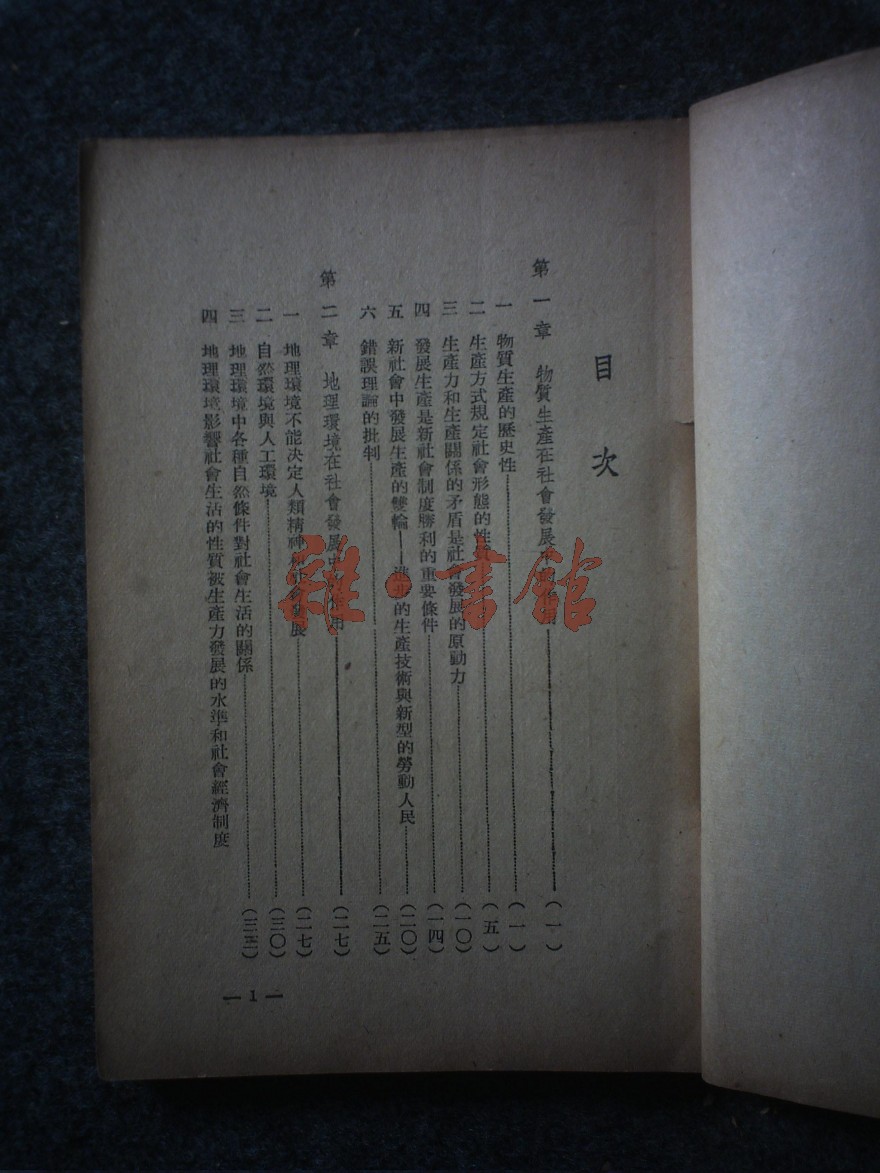 目次
第一章 物質生產在社會發展中 用 (一)
一 物質生產的歷史性 (一)
二 生產方式規定社會形態的性質 (五)
三 生產力和生產關係的矛盾是社會發展的原動力 (一〇)
四 發展生產是新社會制度勝利的重要條件 (一四)
五 新社會中發展生產的雙輪——進步的生產技術與新型的勞動人民 (二〇)
六 錯誤理論的批判 (二五)
第二章 地理環境在社會發展中 作用 (二七)
一 地理環境不能決定人類精神和社會發展 (二七)
二 自然環境與人工環境 (三〇)
三 地理環境中各種自然條件對社會生活的關係 (三三)
四 地理環境影響社會生活的性質被生產力發展的水準和社會經濟制度
— 1 —
雜·書館